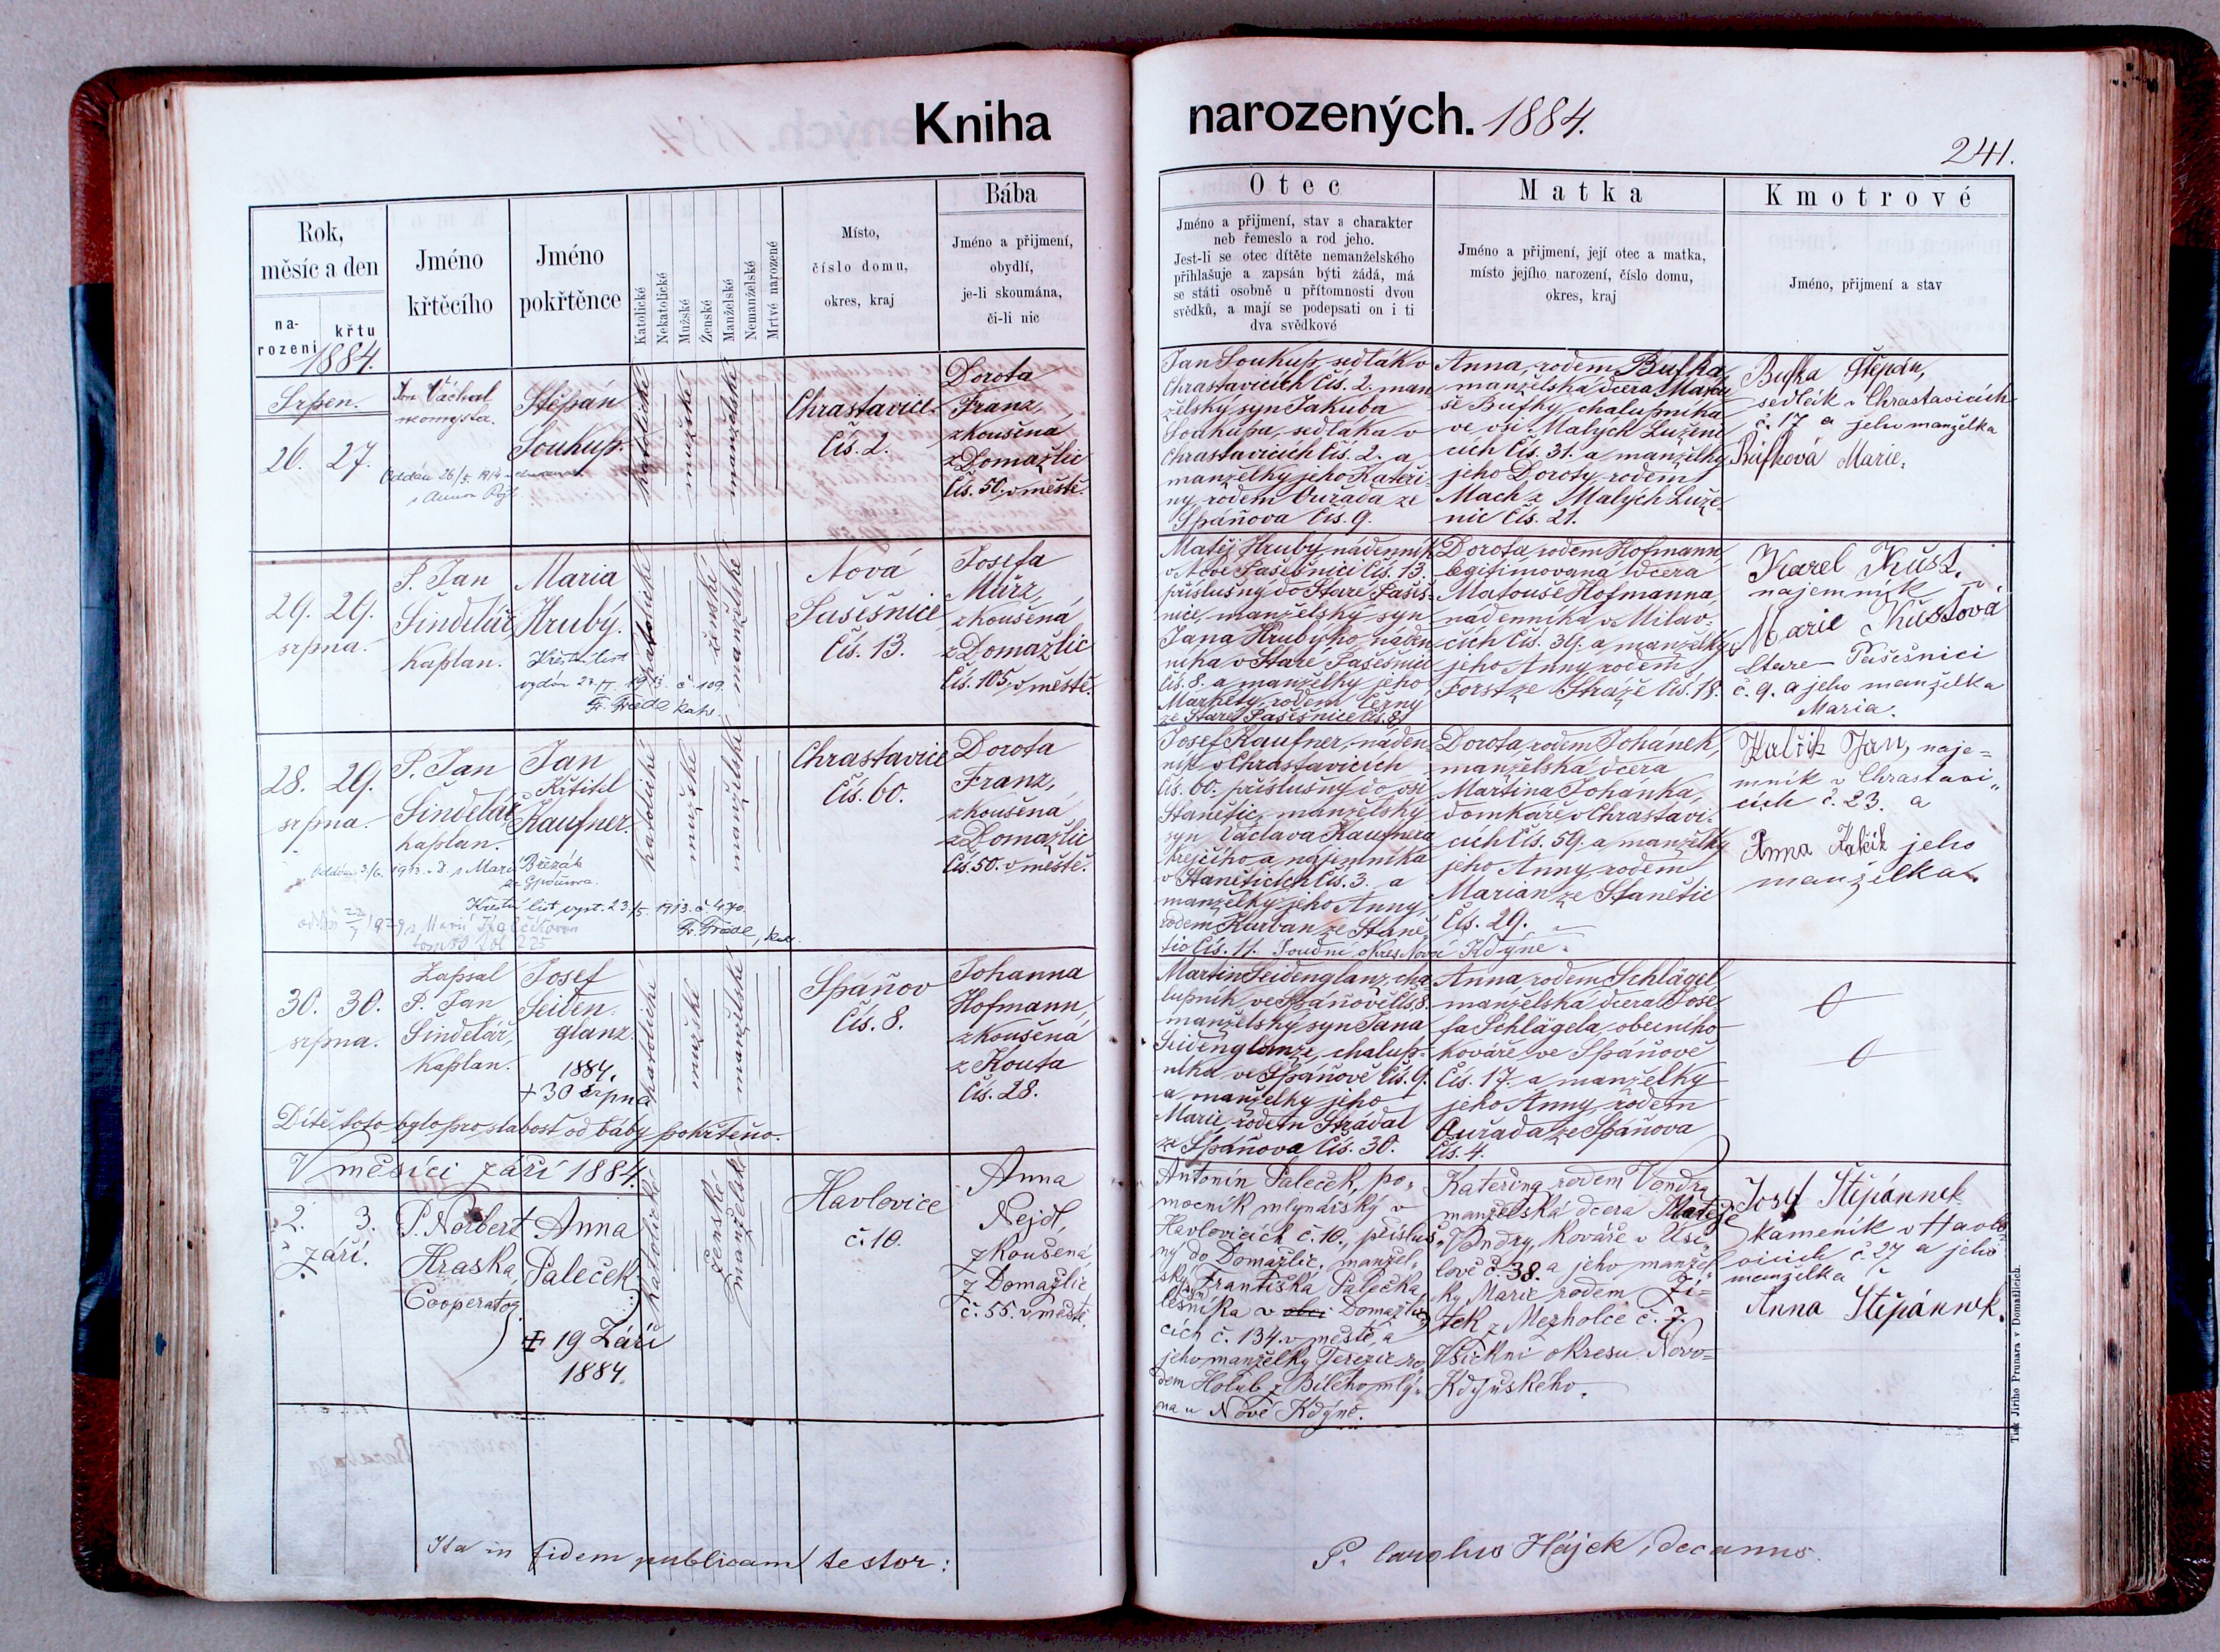 Kniha
narozených. 1884.
241.
Rok,
měsíc a den
na-
rozeni
křtu
1884.
Jméno
křtěcího
Jméno
pokřtěnce
Katolické
Nekatolické
Mužské
Ženské
Manželské
Nemanželské
Mrtvě narozené
Místo,
číslo domu,
okres, kraj
Bába
Jméno a přijmení,
obydlí,
je-li skoumána,
či-li nic
Otec
Jméno a přijmení, stav a charakter
neb řemeslo a rod jeho.
Jest-li se otec dítěte nemanželského
přihlašuje a zapsán býti žádá, má
se státi osobně u přítomnosti dvou
svědků, a mají se podepsati on i ti
dva svědkové
Matka
Jméno a přijmení, její otec a matka,
místo jejího narození, číslo domu,
okres, kraj
Kmotrové
Jméno, přijmení a stav
Srpen.
26. 27.
Jan Váchal
Štěpán
Soukup.
Oddán 26/5. 1914
s Annou
katolické
mužské
manželské
Chrastavice.
Čís. 2.
Dorota
Franz,
zkoušena
z Domažlic
Čís. 50. v městě.
Jan Soukup, sedlák v
Chrastavicích Čís. 2. man
želský syn Jakuba
Soukupa, sedláka v
Chrastavicích Čís. 2. a
manželky jeho Kateři-
ny, rodem Ouřada ze
Spáňova Čís. 9.
Anna, rodem Bufka,
manželská dcera Matou
še Bufky, chalupníka
ve vsi Malých Luženi
cích Čís. 31. a manželky
jeho Doroty, rodem
Mach z Malých Luže-
nic Čís. 21.
Bufka Štěpán,
sedlák v Chrastavicích
č. 17 a jeho manželka
Bufková Marie.
29. 29.
srpna.
P. Jan
Šindelář,
Kaplan.
Maria
Hrubý.
Křestní list
vydán 23/IV 1913. č 109.
Fr. Fráde kate.
katolické
ženské
manželské
Nová
Pašešnice
Čís. 13.
Josefa
Mürz,
zkoušena
z Domažlic
Čís. 105. v městě.
Matěj Hrubý, nádenník
v Nové Pašešnici Čís. 13.
příslušný do Staré Pašeš-
nice, manželský syn
Jana Hrubýho, náden
níka v Staré Pašešnici
Čís. 8. a manželky jeho
Markéty, rodem Černý
ze Staré Pašešnice čís. 8.
Dorota, rodem Hofmann,
legitimovaná dcera
Matouše Hofmanna,
nádenníka v Milav-
čích Čís. 39. a manželky
jeho Anny, rodem
Forst ze Stráže Čís. 18.
Karel Kust,
najemník v
Marie Kustová
Staré Pašešnici
č. 9. a jeho manželka
Maria.
28. 29.
srpna.
P. Jan
Šindelář,
kaplan.
Jan
Křtitel
Kaufner.
Oddán 3/6. 1913. s Marií Březák
Křestní list vyst. 23/5. 1913. č 470.
Fr. Fráde, kate.
katolické
mužské
manželské
Chrastavice
Čís. 60.
Dorota
Franz,
zkoušená
z Domažlic
Čís. 50. v městě.
Josef Kaufner, náden
ník v Chrastavicích
Čís. 60. příslušný do vsi
Stanětic, manželský
syn Václava Kaufnera
krejčího a nájemníka
v Staněticích Čís. 3. a
manželky jeho Anny,
rodem Kurban ze Staně
tic Čís. 11. Soudní okres Nová Kdyně.
Dorota, rodem Johánek,
manželská dcera
Martina Johánka,
domkáře v Chrastavi-
cích Čís. 59. a manželky
jeho Anny, rodem
Marian ze Stanětic
Čís. 29.
Kalčík Jan, náje-
mník v Chrastavi
cích č. 23. a
Anna Kalčik jeho
manželka.
30. 30.
srpna.
Zapsal
P. Jan
Šindelář,
Kaplan.
Josef
Seiden-
glanz.
1884.
+ 30 srpna
Dítě toto bylo pro slabost od báby pokřtěno.
katolické
mužské
manželské
Spáňov
Čís. 8.
Johanna
Hofmann,
zkoušená
z Kouta
Čís. 28.
Martin Seidenglanz, cha
lupník ve Spáňově Čís. 8.
manželský syn Jana
Seidenglanze, chalup-
níka ve Spáňově Čís. 9.
a manželky jeho
Marie, rodem Strádal
ze Spáňova Čís. 30.
Anna, rodem Schlägel
manželská dcera Jose
fa Schlägela, obecního
kováře ve Spáňově
Čís. 17. a manželky
jeho Anny, rodem
Ouřada ze Spáňova
Čís. 4.
V měsíci září 1884.
2. 3.
září.
P. Norbert
Hraska,
Cooperator.
Anna
Paleček
+ 19 Září
1884.
katolické
ženské
manželské
Havlovice
č. 10.
Anna
Nejdl,
zkoušená
z Domažlic
č. 55. v městě.
Antonín Paleček, po-
mocník mlynářský v
Havlovicích č. 10., přísluš-
ný do Domažlic, manžel-
ský syn Františka Palečka,
lesníka v obci Domažli
cích č. 134. v městě, a
jeho manželky Terezie ro-
dem Holub z Bílého mlý-
na u Nové Kdýně.
Kateřina rodem Vondra
manželská dcera Matěje
Vondry, kováře v Úsi-
lově č. 38. a jeho manžel-
ky Marie rodem Ží-
tek z Mezholce č. 7.
Všickni okresu Novo-
Kdyňského.
Josef Štěpánnek
kameník v Havlo-
vicích č. 27 a jeho
manželka
Anna Štěpánnek.
Ita in fidem publicam testor:
P. Carolus Hájek, decanus.
Tisk Jiřího Prunara v Domažlicích.